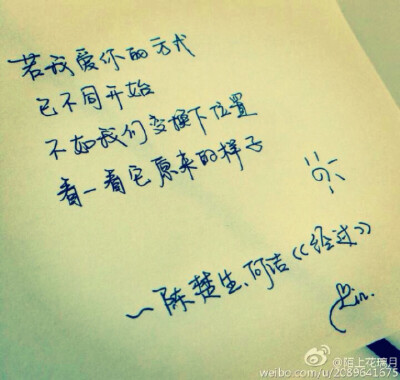 若我爱你的方式
已不同开始
不如我们变换下位置
看一看它原来的样子
～陈楚生、何洁《经过》
@陌上花摘月
weibo.com/u/2089641575